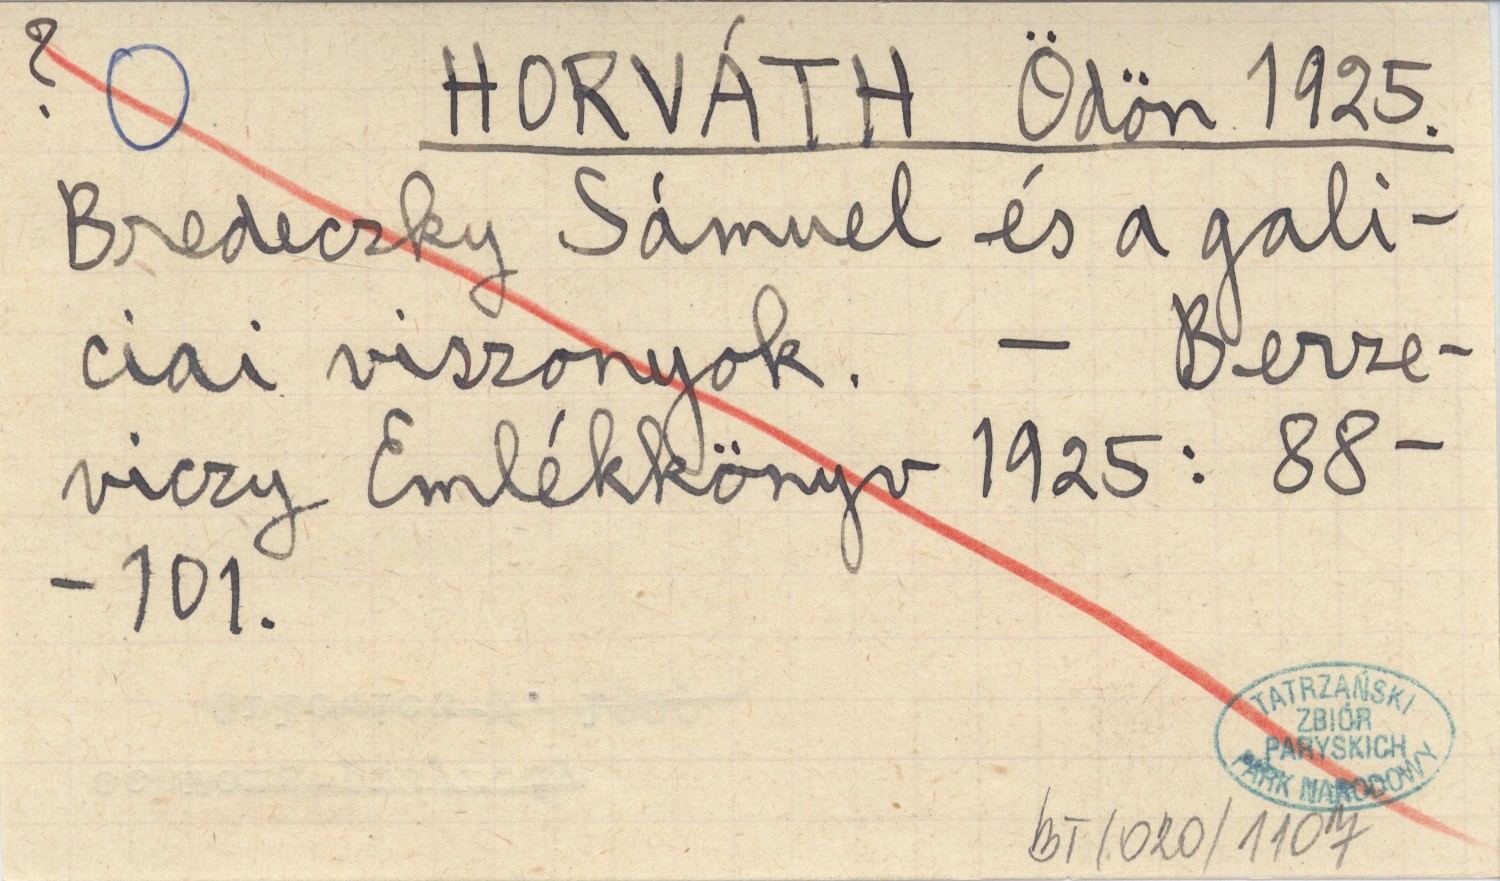 ?
HORVÁTH Ödön 1925.
Bredeczky Sámuel és a gali-
ciai viszonyok. — Berze-
viczy Emlékkönyv 1925: 88-
-101.
TATRZAŃSKI
ZBIÓR
PARYSKICH
PARK NARODOWY
BT/020/1107